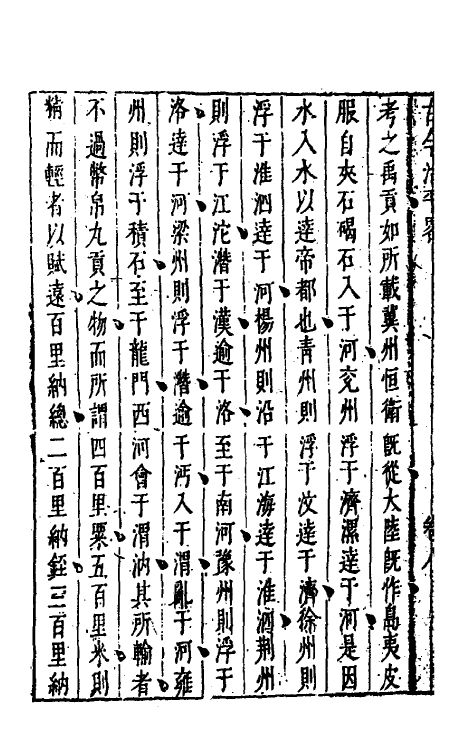 古今治平畧　卷八
考之禹貢如所載冀州恒衛旣從大陸旣作島夷皮
服自夾石碣石入于河兖州浮于濟漯達于河是因
水入水以達帝都也青州則浮于汶達于濟徐州則
浮于淮泗達于河揚州則沿于江海達于淮泗荆州
則浮于江沱潛于漢逾于洛至于南河豫州則浮于
洛達于河梁州則浮于潛逾于沔入于渭亂于河雍
州則浮于積石至于龍門西河會于渭汭其所輸者
不過幣帛九貢之物而所謂四百里粟五百里米則
精而輕者以賦遠百里納總二百里納銍三百里納